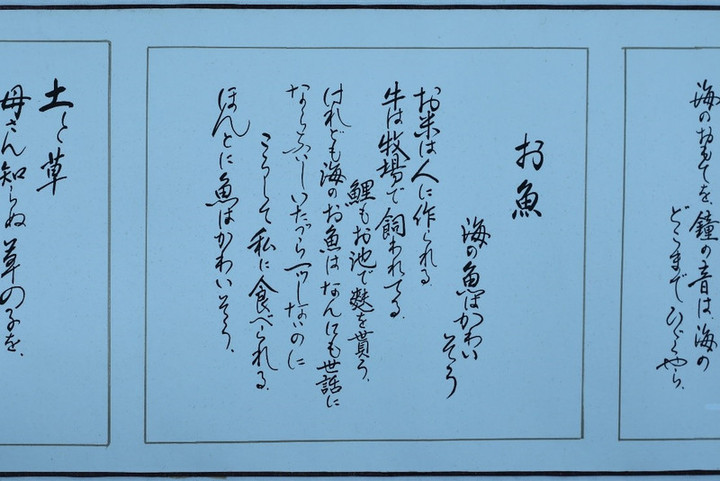 海のおもてを、鐘の音は、海の
どこまで ひゞくやら。
お魚
海の魚はかわい
そう
お米は人に作られる、
牛は牧場で飼われてる、
鯉もお池で麩を貰う。
けれども海のお魚は なんにも世話に
ならないしいたづら一つしないのに
こうして私に食べられる。
ほんとに魚はかわいそう。
土と草
母さん知らぬ 草の子を、